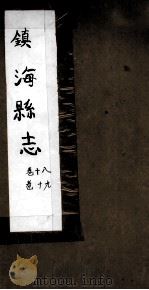 鎮海縣志
卷十八
卷十九